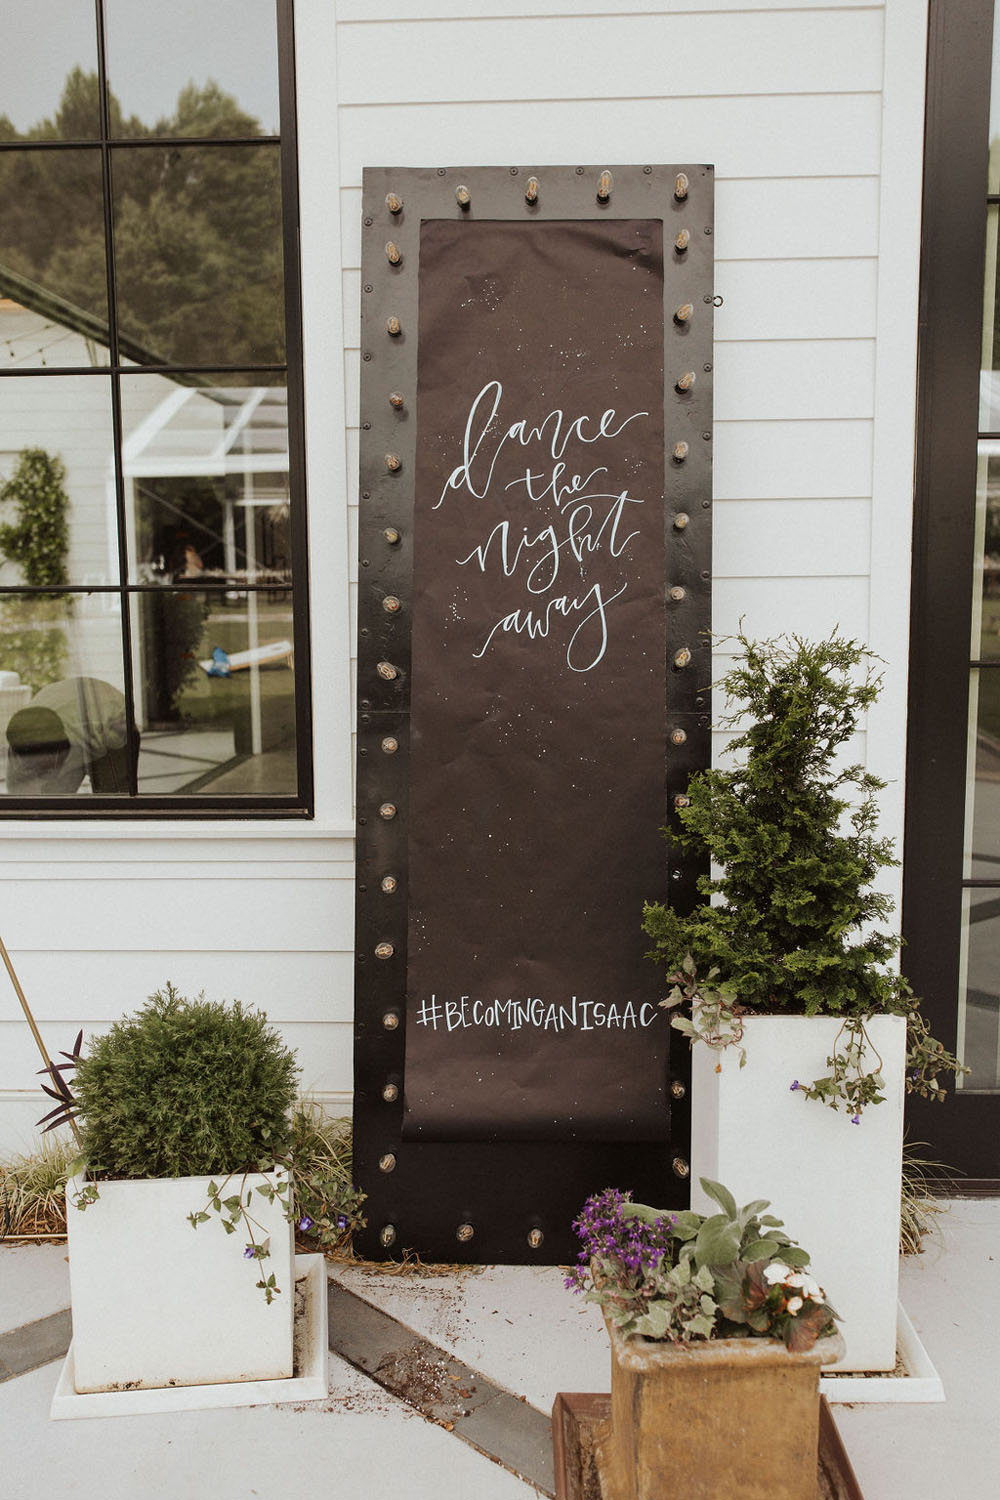 dance
the
night
away
#BECOMINGANISAAC